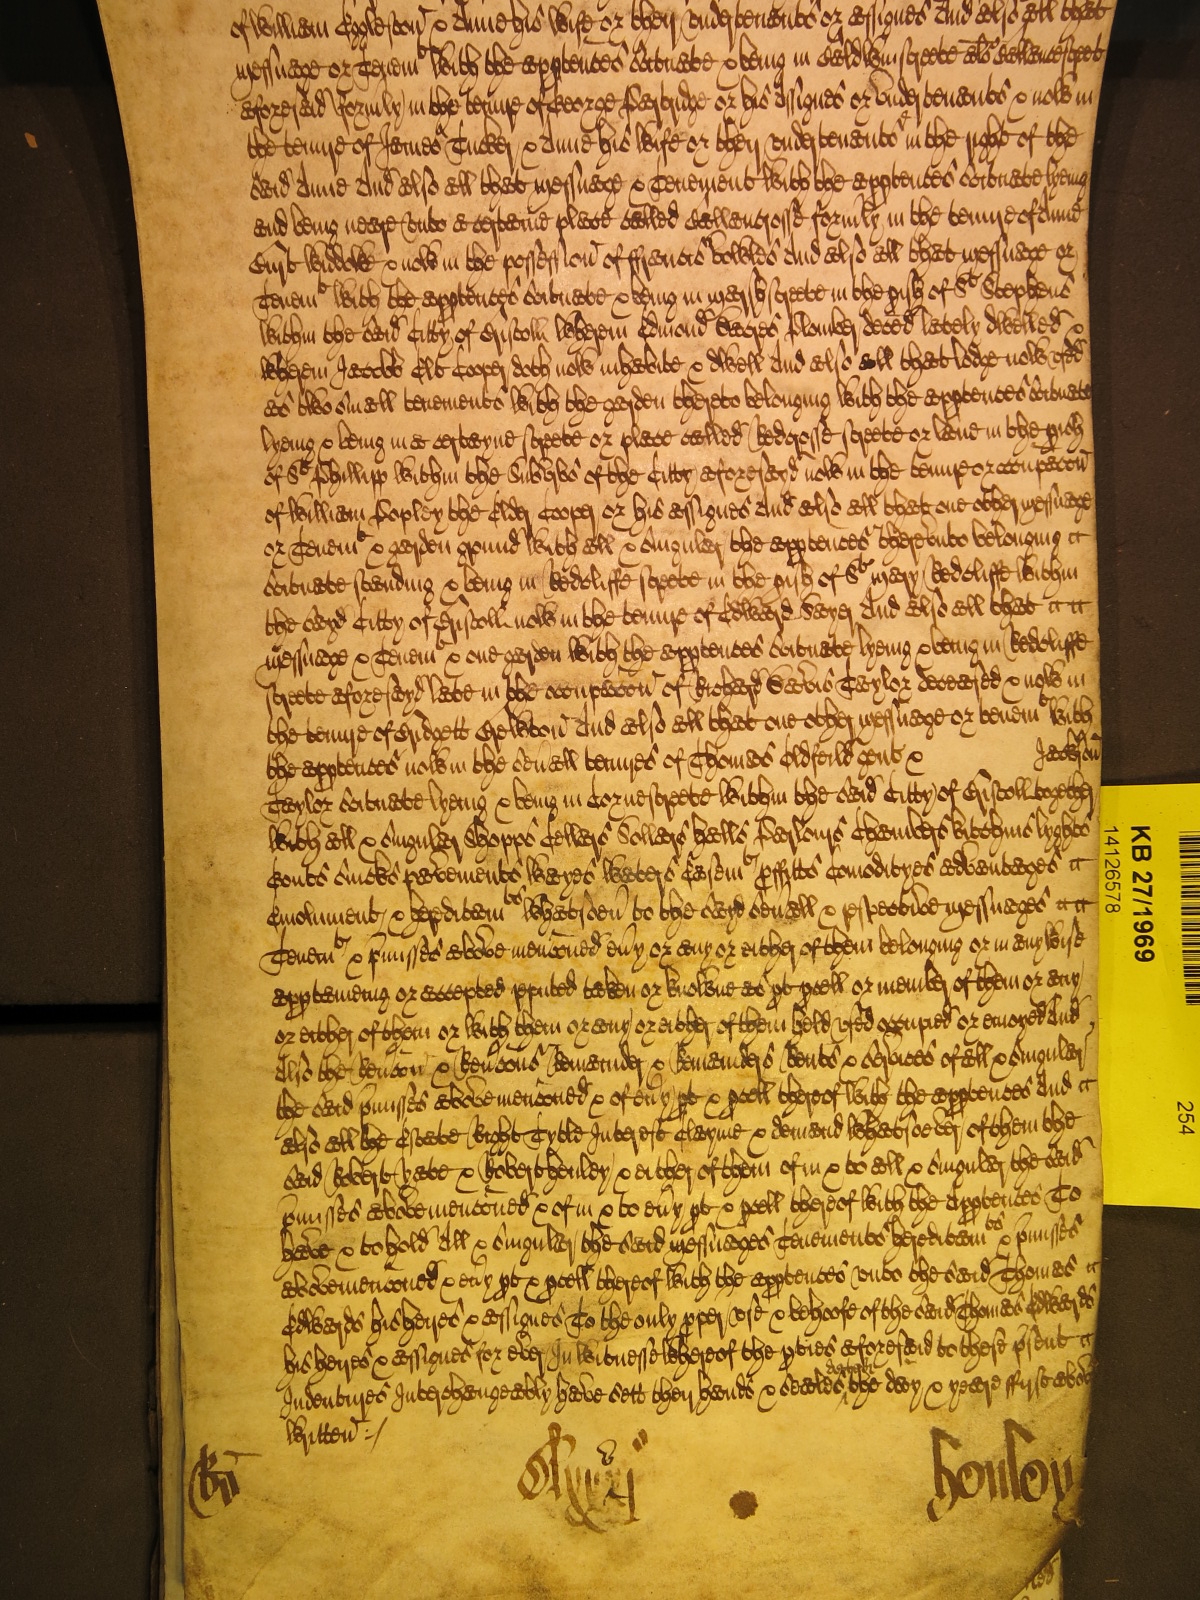 of William Eggleston & Anne his wife or their undertenants or assignes And also all that
messuage or Tenemt with the apptences scituate & being in Baldwin streete als Ballance streete
aforesaid formly in the tenure of George Partridge or his assignes or undertenants & now in
the tenure of James Tucker & Anne his wife or their undertenants in the right of the
said Anne And also all that messuage & Tenement with the apptences scituate lyeing
and being neare unto a certaine place called formly in the tenure of Anne
widdow & now in the possession of ffrancis Bowles And also all that messuage or
Tenemt with the apptences scituate & being in Marsh streete in the pish of St Stephens
within the said Citty of Bristoll wherein Edmond Plomber decēd lately dwelled &
wherein Jacobb Elt Cooper doth now inhabite & dwell And also all that lodge now used
as two small tenements with the garden thereto belonging with the apptences scituate
lyeing & being in a certayne streete or place called Redcrosse streete or lane in the pish
of St Phillipp within the Suburbs of the Citty aforesayd now in the tenure or occupacon
of William Popley the Elder Cooper or his assignes And also all that one other messuage
or Tenemt & garden ground with all & singuler the apptences thereunto belonging
scituate standing & being in Redcliffe streete in the pish of St Mary Redcliffe within
the sayd Citty of Bristoll now in the tenure of Edward Sayer And also all that
messuage & Tenemt & one garden with the apptences scituate lyeing & being in Redcliffe
streete aforesayd late in the occupacon of Richard Taylor deceased & now in
the tenure of Bridgett And also all that one other messuage or tenemt with
the apptences now in the sevall tenures of Thomas Oldfeild gent & Jackson
Taylor scituate lyeing & being in Cornestreete within the said Citty of Bristoll together
with all & singuler Shopps Cellers Sollers halls Parlours Chambers kitchins lyghts
pavements wayes waters Easemts proffitts Comodityes advantages
Emolument & hereditamts whatsoev to the sayd sevall & respective messuages
Tenemts & pmisses above menconed evy or any or either of them belonging or in any wise
apptaineing or accepted reputed taken or knowne as pt pcell or member of them or any
or either of them or with them or any or either of them held used occupied or enioyed And
also the Revcon & Revcons Remainder & Remainders Rents & services of all & singuler
the said pmisses above menconed & of evy pt & pcell thereof with the apptences And
also all the Estate Right Tytle Interest Clayme & demand whatsoever of them the
said Robert Yate & Robert Henley & either of them of in & to all & singuler the said
pmisses above menconed & of in & to evy pt & pcell thereof with the apptences To
have & to hold All & singuler the said messuages Tenements hereditamts & pmisses
above menconed & evy pt & pcell thereof with the apptences unto the said Thomas
Edwards his heires & assignes To the only pper use & behoofe of the said Thomas Edwards
his heires & assignes for ever In witnesse whereof the pties aforesaid to these psent
Indentures Interchangeably have sett their hands & seales the day & yeare ffirst above
written
KB 27/1969
14126578
254